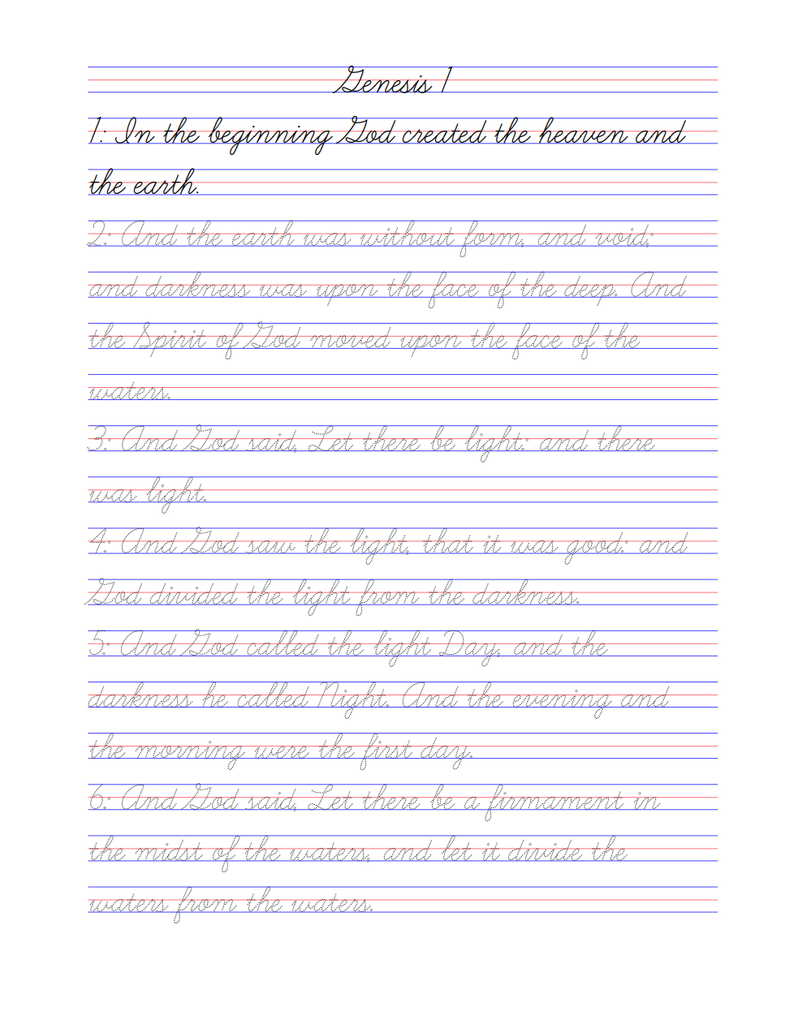 Genesis 1
1: In the beginning God created the heaven and
the earth.
2: And the earth was without form, and void;
and darkness was upon the face of the deep. And
the Spirit of God moved upon the face of the
waters.
3: And God said, Let there be light: and there
was light.
4: And God saw the light, that it was good: and
God divided the light from the darkness.
5: And God called the light Day, and the
darkness he called Night. And the evening and
the morning were the first day.
6: And God said, Let there be a firmament in
the midst of the waters, and let it divide the
waters from the waters.